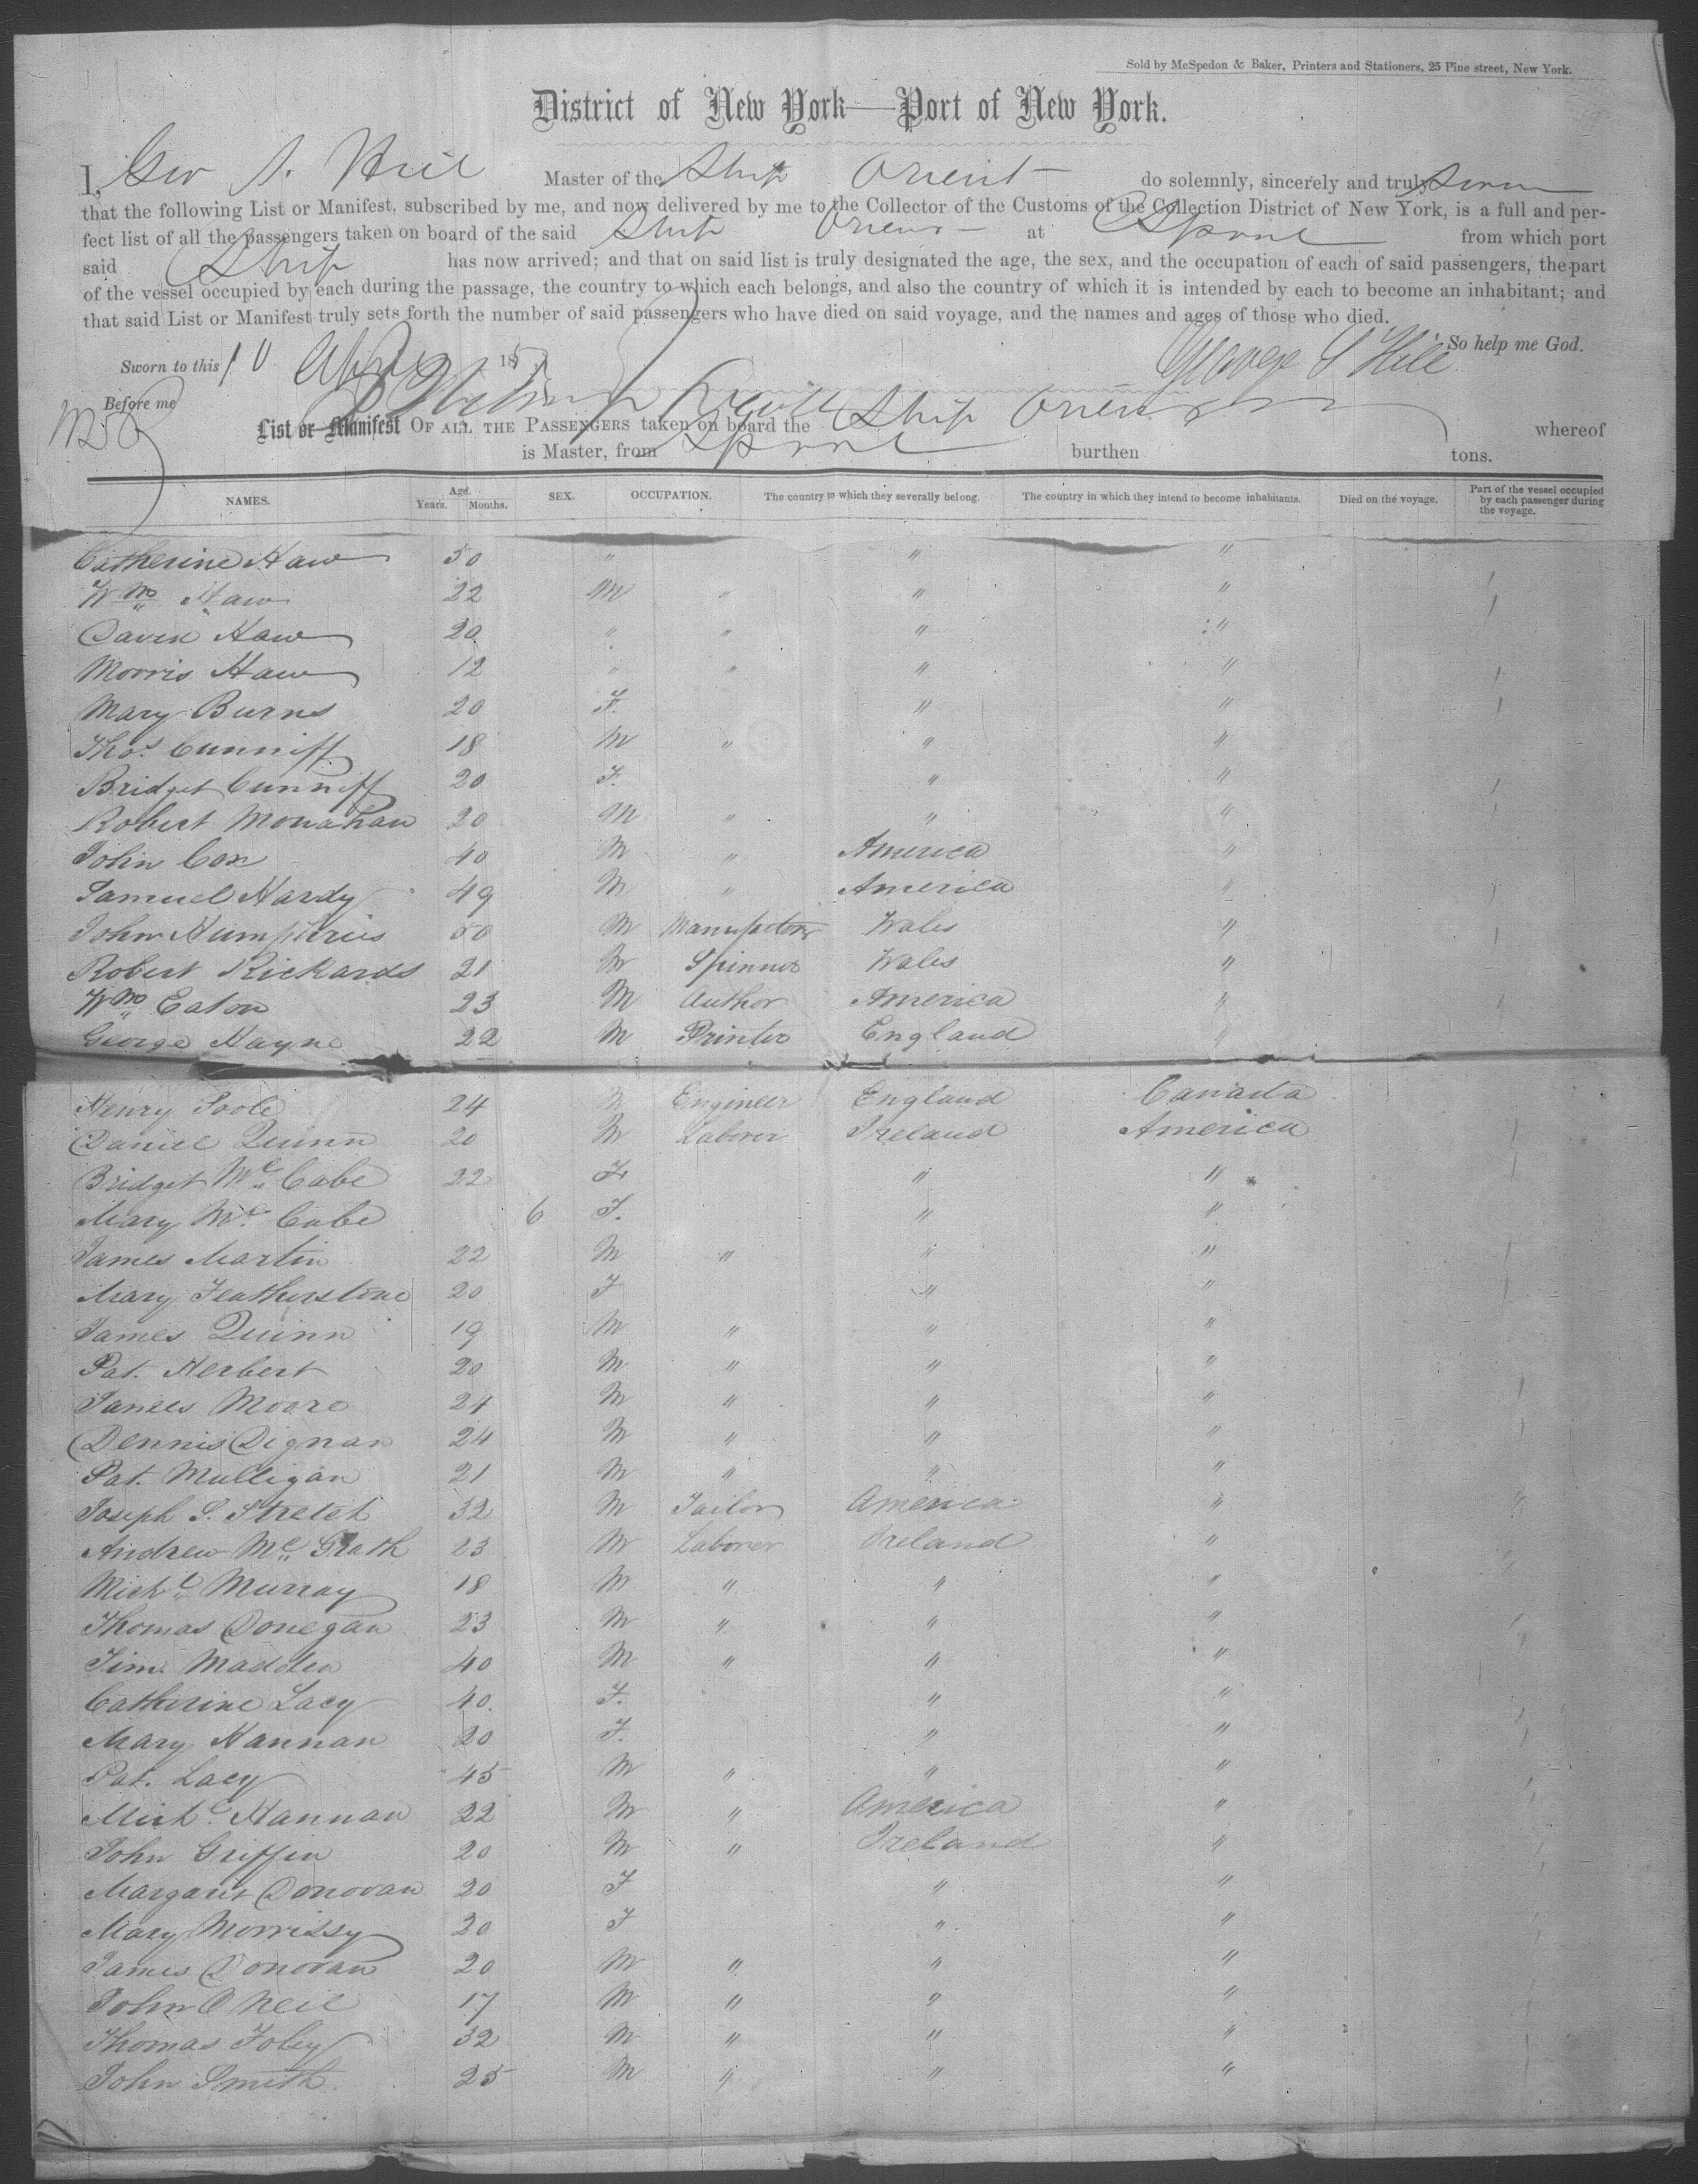 Sold by McSpedon & Baker, Printers and Stationers, 25 Pine street, New York.
District of New York—Port of New York.
I, Geo S. Hill Master of the Ship Orient do solemnly, sincerely and truly swear
that the following List or Manifest, subscribed by me, and now delivered by me to the Collector of the Customs of the Collection District of New York, is a full and per-
fect list of all the passengers taken on board of the said Ship Orient at Lpool from which port
said Ship has now arrived; and that on said list is truly designated the age, the sex, and the occupation of each of said passengers, the part
of the vessel occupied by each during the passage, the country to which each belongs, and also the country of which it is intended by each to become an inhabitant; and
that said List or Manifest truly sets forth the number of said passengers who have died on said voyage, and the names and ages of those who died.
So help me God.
Sworn to this 10 185 George S Hill
Before me
List or Manifest OF ALL THE PASSENGERS taken on board the Ship Orient whereof
is Master, from Lpool burthen tons.
NAMES. Age. Years. Months. SEX. OCCUPATION. The country to which they severally belong. The country in which they intend to become inhabitants. Died on the voyage. Part of the vessel occupied by each passenger during the voyage.
Catherine Haw 50 " " "
Wm Haw 22 M " " "
Haw 20 " " " "
Morris Haw 12 " " " "
Mary Burns 20 F. " "
Thos. Cunniff 18 M " " "
Bridget Cunniff 20 F. " "
Robert Monahan 20 M " " "
John Cox 40 M " America "
Samuel Hardy 49 M " America "
John Humphries 50 M Wales "
Robert Rickards 21 M Spinner Wales "
Wm Eaton 23 M Author America "
George Hayne 22 M Printer England "
Henry Poole 24 M Engineer England Canada
Daniel Quinn 20 M Laborer Ireland America
Bridget Mc Cabe 22 F " "
Mary Mc Cabe 6 F. " "
James Martin 22 M " " "
Mary Featherstone 20 F " "
James Quinn 19 M " " "
Pat. Herbert 20 M " " "
James Moore 24 M " " "
Dennis Dignan 24 M " " "
Pat. Mulligan 21 M " " "
Joseph S. Stretch 32 M Tailor America "
Andrew Mc Grath 23 M Laborer Ireland "
Michl Murray 18 M " " "
Thomas Donegan 23 M " " "
Tim. Madden 40 M " " "
Catherine Lacy 40. F. " "
Mary Hannan 20 F. " "
Pat. Lacy 45 M " " "
Michl. Hannan 22 M " America "
John Griffin 20 M " Ireland "
Margaret Donovan 20 F " "
Mary Morrissy 20 F " "
James Donovan 20 M " " "
John O Neil 17 M " " "
Thomas Foley 32 M " " "
John Smith. 25 M " " "